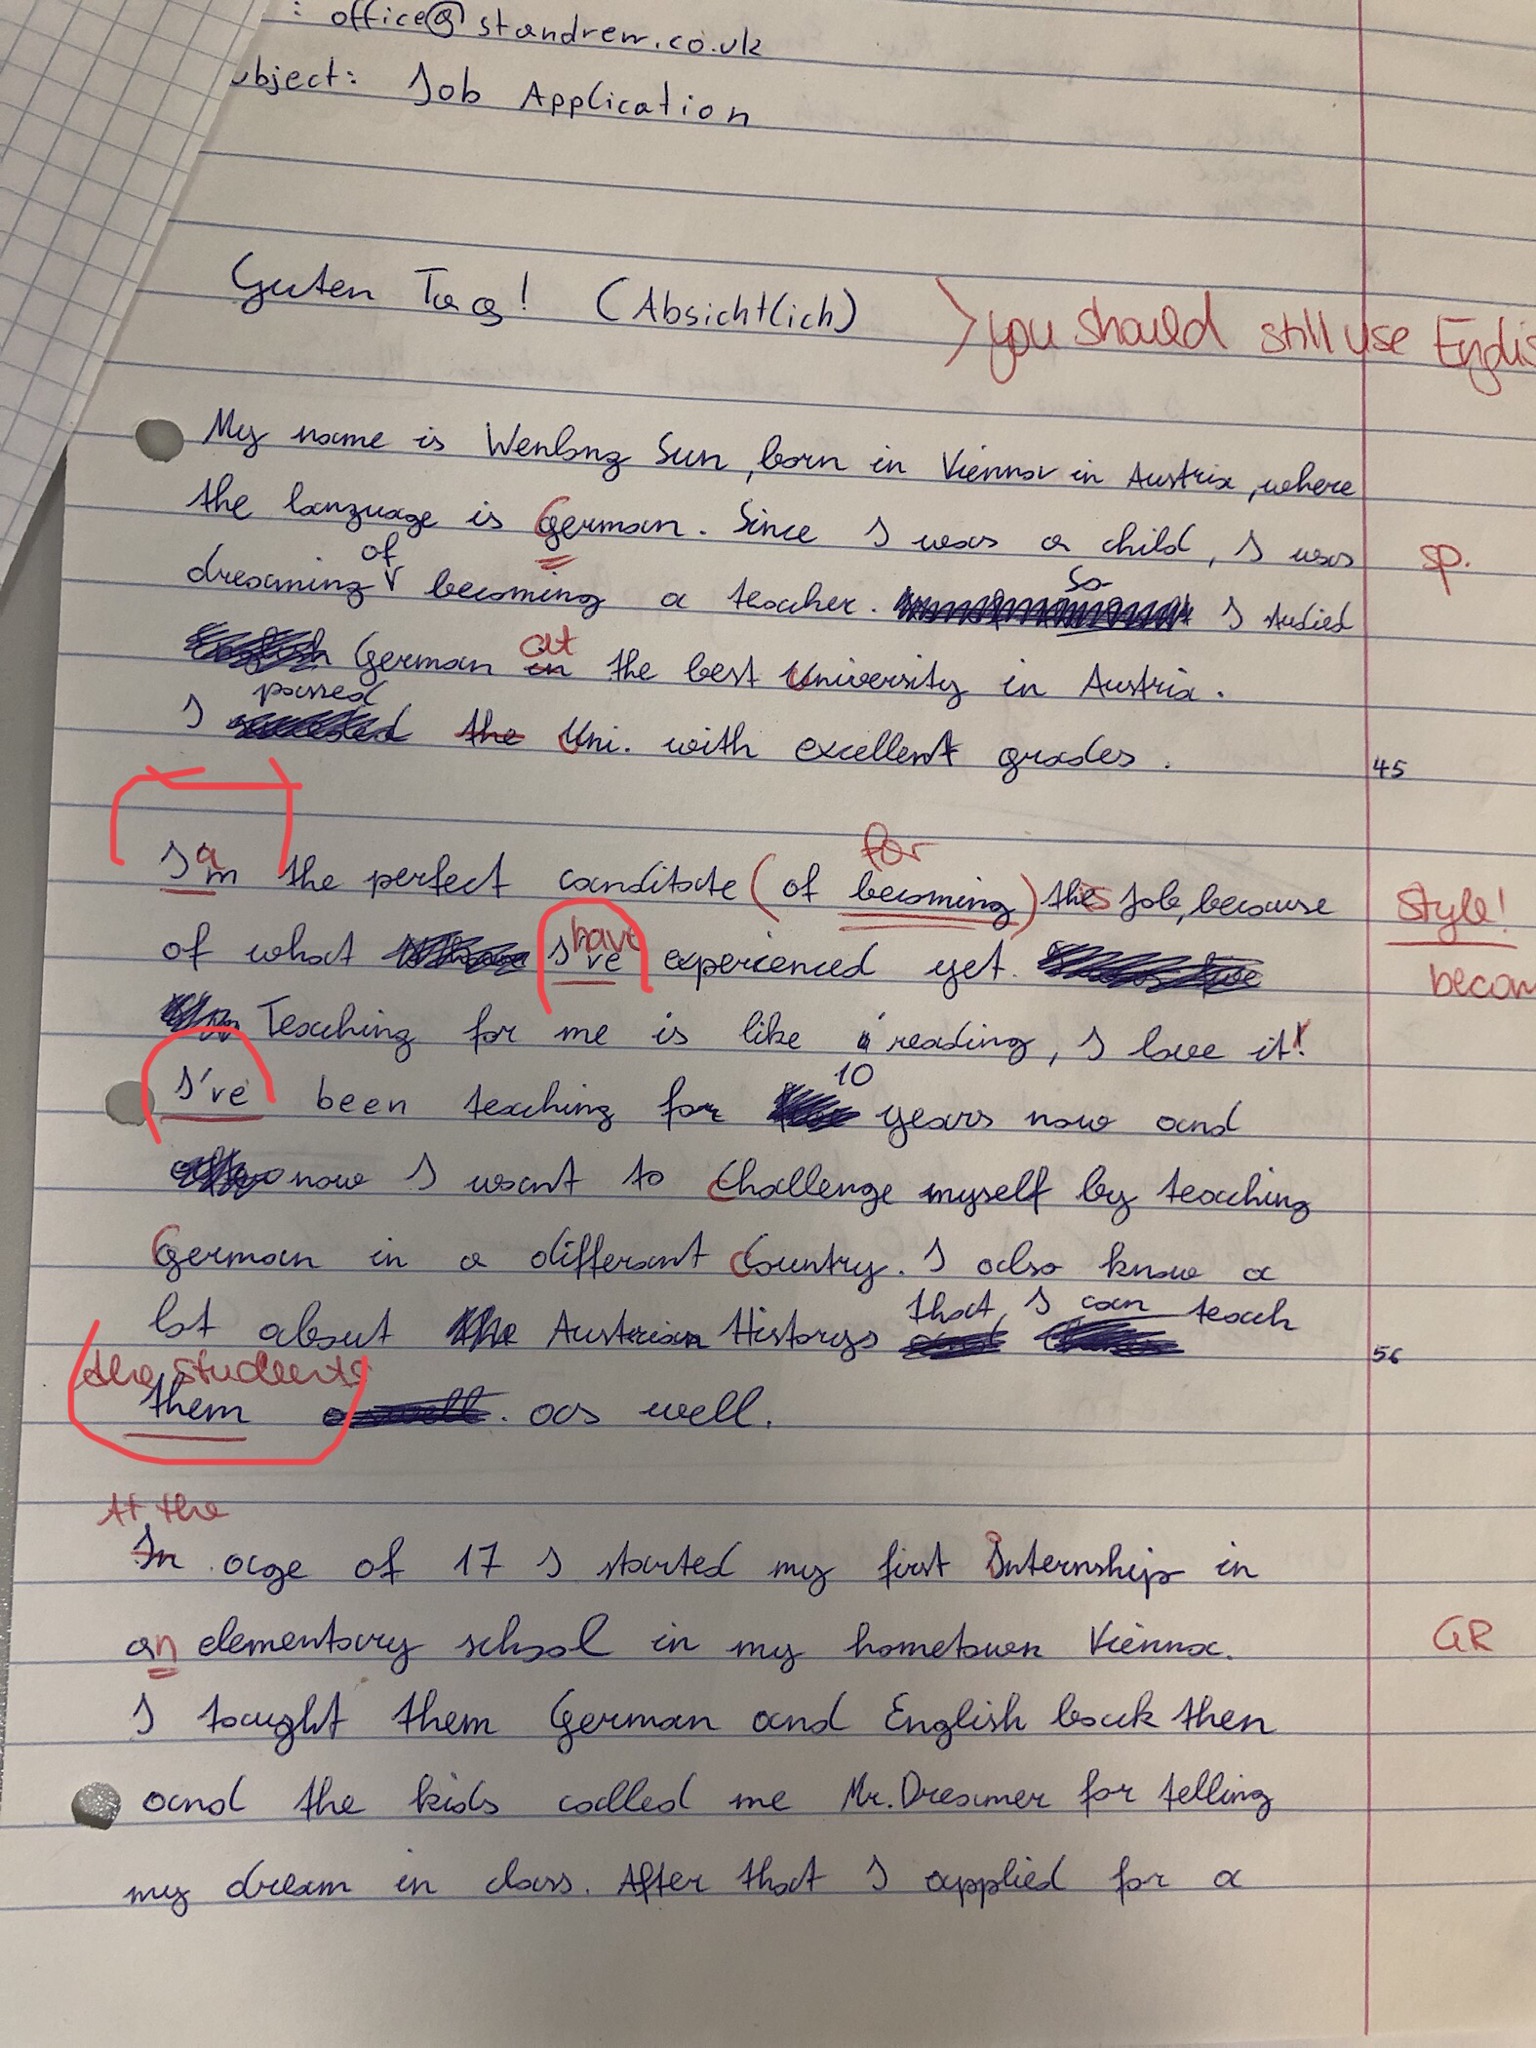 : office@standrew.co.uk
ubject: Job Application
Guten Tag! (Absichtlich) >you should still use Englis
My name is Wenlong Sun, born in Vienna in Austria, where
the language is German. Since I was a child, I was sp.
of
dreaming becoming a teacher. So I studied
German in at the best university in Austria.
passed
I the Uni. with excellent grades. 45
I am the perfect canditate (of becoming) for this Job, because Style!
of what I've have experienced yet. becom
Teaching for me is like reading, I love it!
10
I've been teaching for years now and
now I want to challenge myself by teaching
German in a different country. I also know a
lot about Austrian Historys that I can teach 56
the students
them as well.
At the
In age of 17 I started my first Internship in
an elementary school in my hometown Vienna. GR
I taught them German and English back then
and the kids called me Mr. Dreamer for telling
my dream in class. After that I applied for a